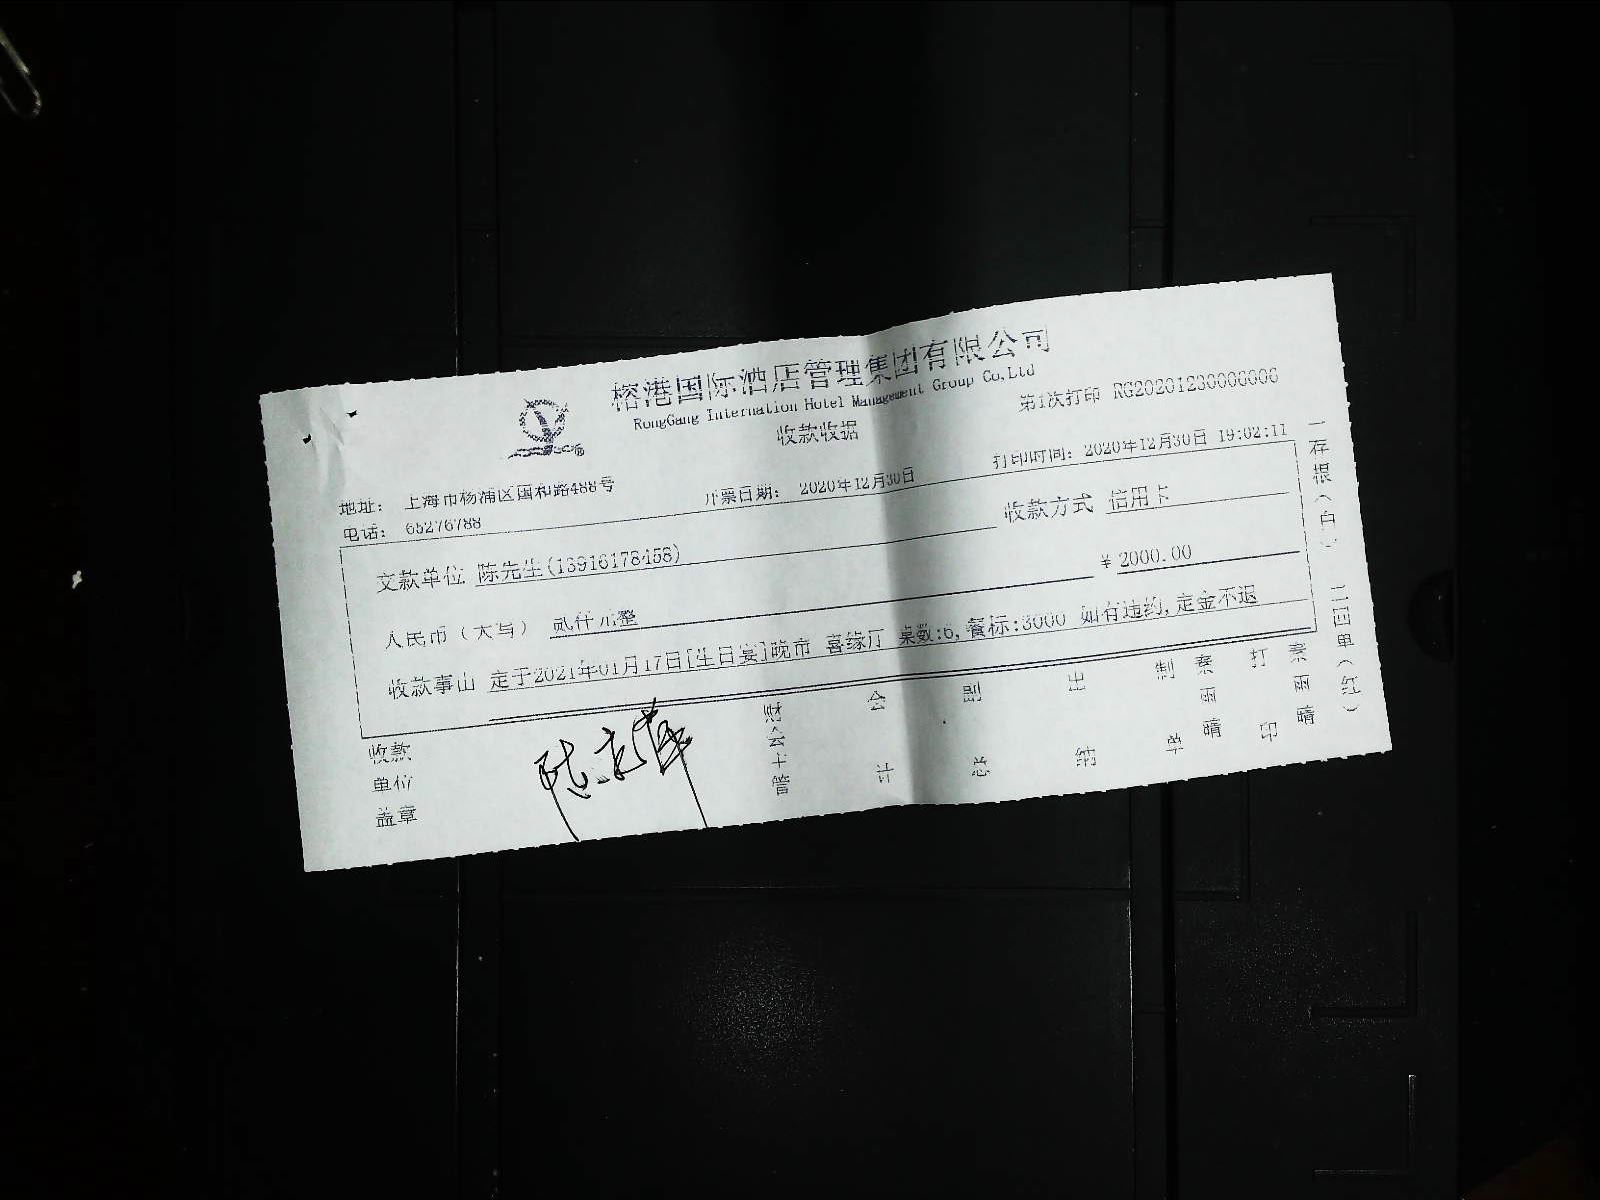 榕港国际酒店管理集团有限公司
RongGang Internation Hotel Management Group Co,Ltd
收款收据
第1次打印 RG20201230006006
地址: 上海市杨浦区国和路488号
开票日期: 2020年12月30日
打印时间: 2020年12月30日 19:02:11
电话: 65276788
交款单位 陈先生(13916178458)
收款方式 信用卡
人民币(大写) 贰仟元整
¥ 2000.00
收款事由 定于2021年01月17日[生日宴]晚市 喜缘厅 桌数:6,餐标:3000 如有违约,定金不退
收款单位盖章
财会主管
会计
副总
出纳
制单
秦雨晴
打印
秦雨晴
一存根(白) 二回单(红)